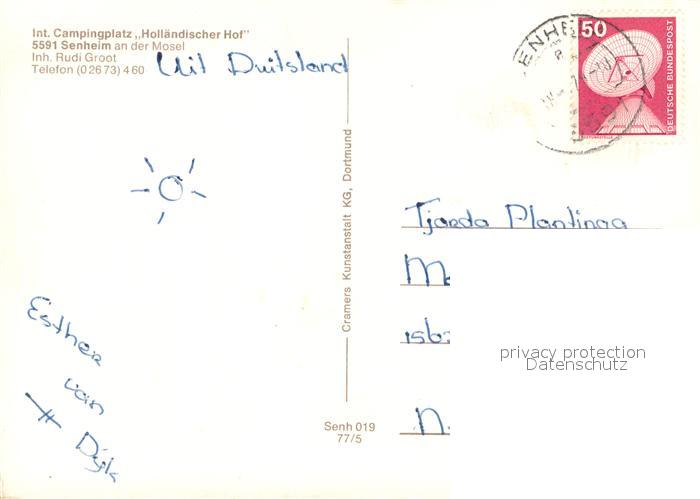 Int. Campingplatz „Holländischer Hof"
5591 Senheim an der Mosel
Inh. Rudi Groot
Telefon (0 26 73) 4 60
Uit Duitsland
50
DEUTSCHE BUNDESPOST
Cramers Kunstanstalt KG, Dortmund
Tjarda Plantinga
privacy protection
Datenschutz
Esther
van
Dijk
Senh 019
77/5